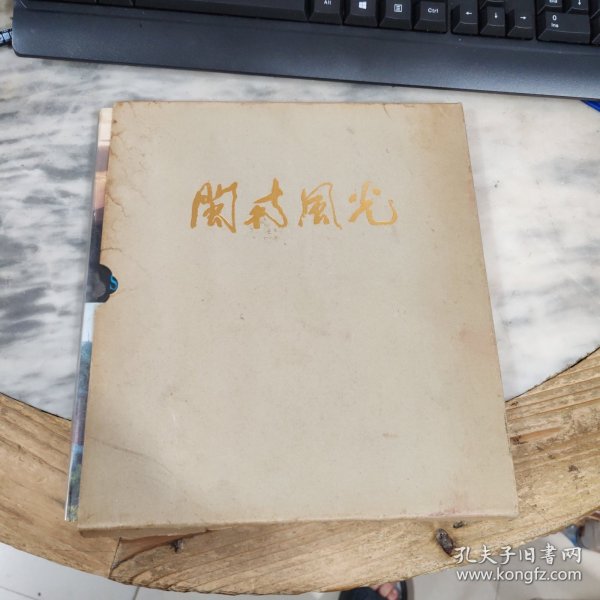 Alt
Ctrl
0
Ins
閩南風光
孔夫子旧书网
www.kongfz.com